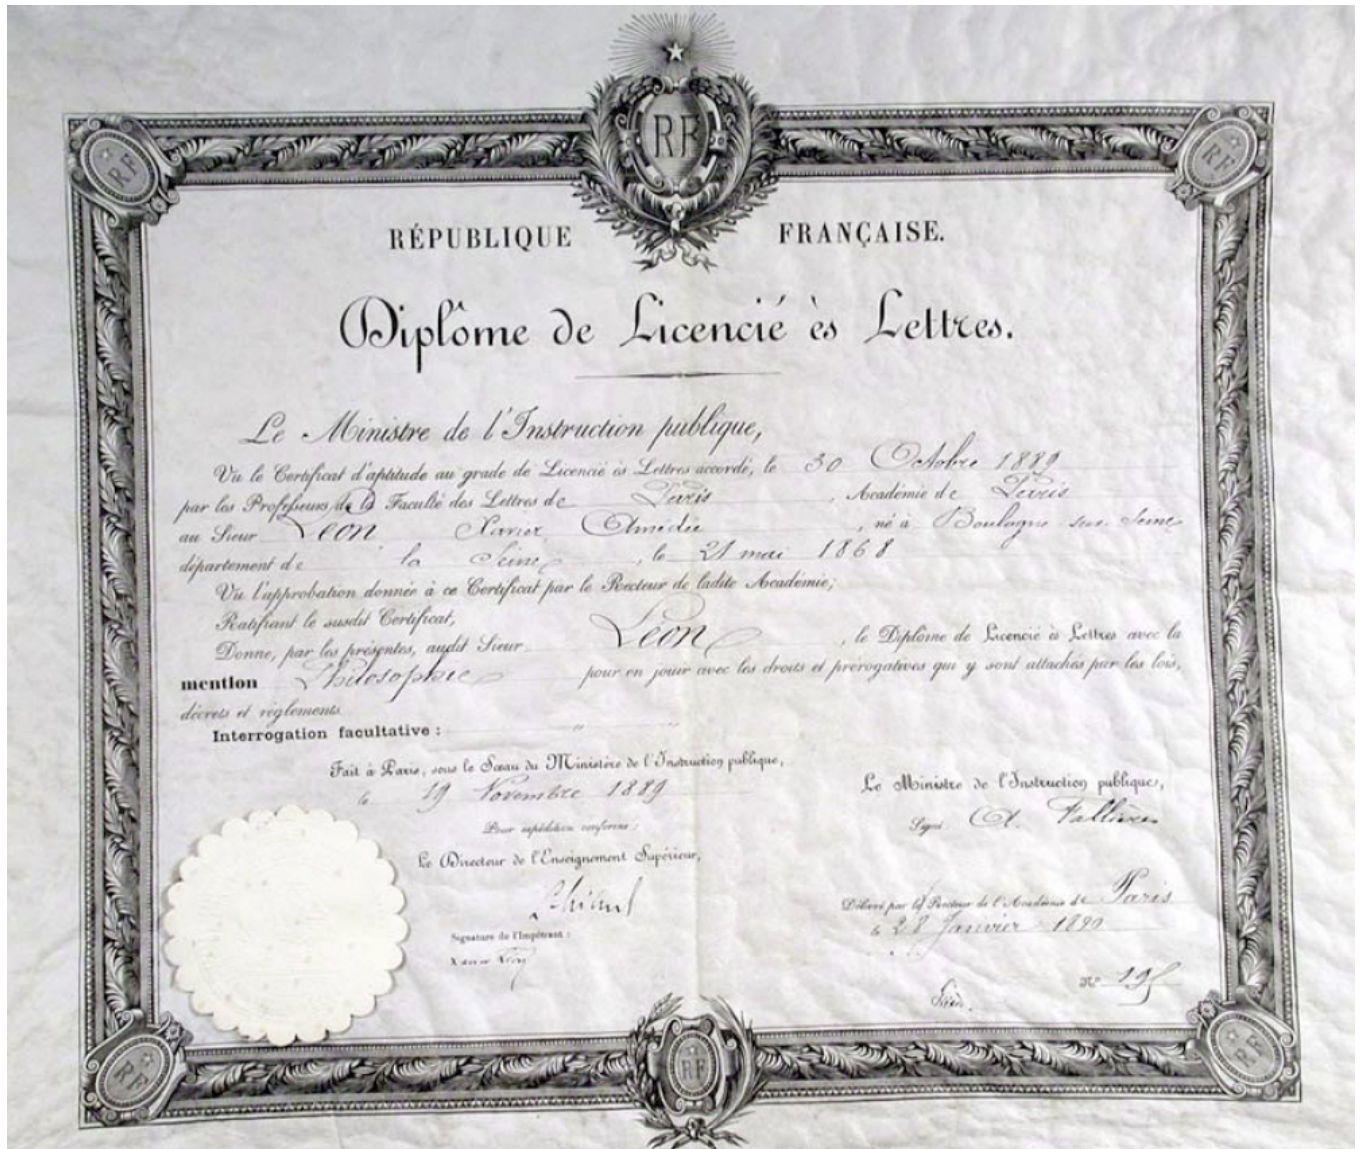 RF
RF
RF
RÉPUBLIQUE FRANÇAISE.
Diplôme de Licencié ès Lettres.
Le Ministre de l'Instruction publique,
Vu le Certificat d'aptitude au grade de Licencié ès Lettres accordé, le 30 Octobre 1889
par les Professeurs de la Faculté des Lettres de Paris, Académie de Paris
au Sieur Léon Xavier Amédée, né à Boulogne sur Seine
département de la Seine, le 21 mai 1868
Vu l'approbation donnée à ce Certificat par le Recteur de ladite Académie;
Ratifiant le susdit Certificat,
Donne, par les présentes, audit Sieur Léon, le Diplôme de Licencié ès Lettres avec la
mention Philosophie pour en jouir avec les droits et prérogatives qui y sont attachés par les lois,
décrets et règlements.
Interrogation facultative : "
Fait à Paris, sous le Sceau du Ministère de l'Instruction publique,
le 19 Novembre 1889
Le Ministre de l'Instruction publique,
Signé A. Fallières
Pour expédition conforme :
Le Directeur de l'Enseignement Supérieur,
Délivré par le Recteur de l'Académie de Paris
le 28 Janvier 1890
Signature de l'Impétrant :
Xavier Léon
N°
RF
RF
RF